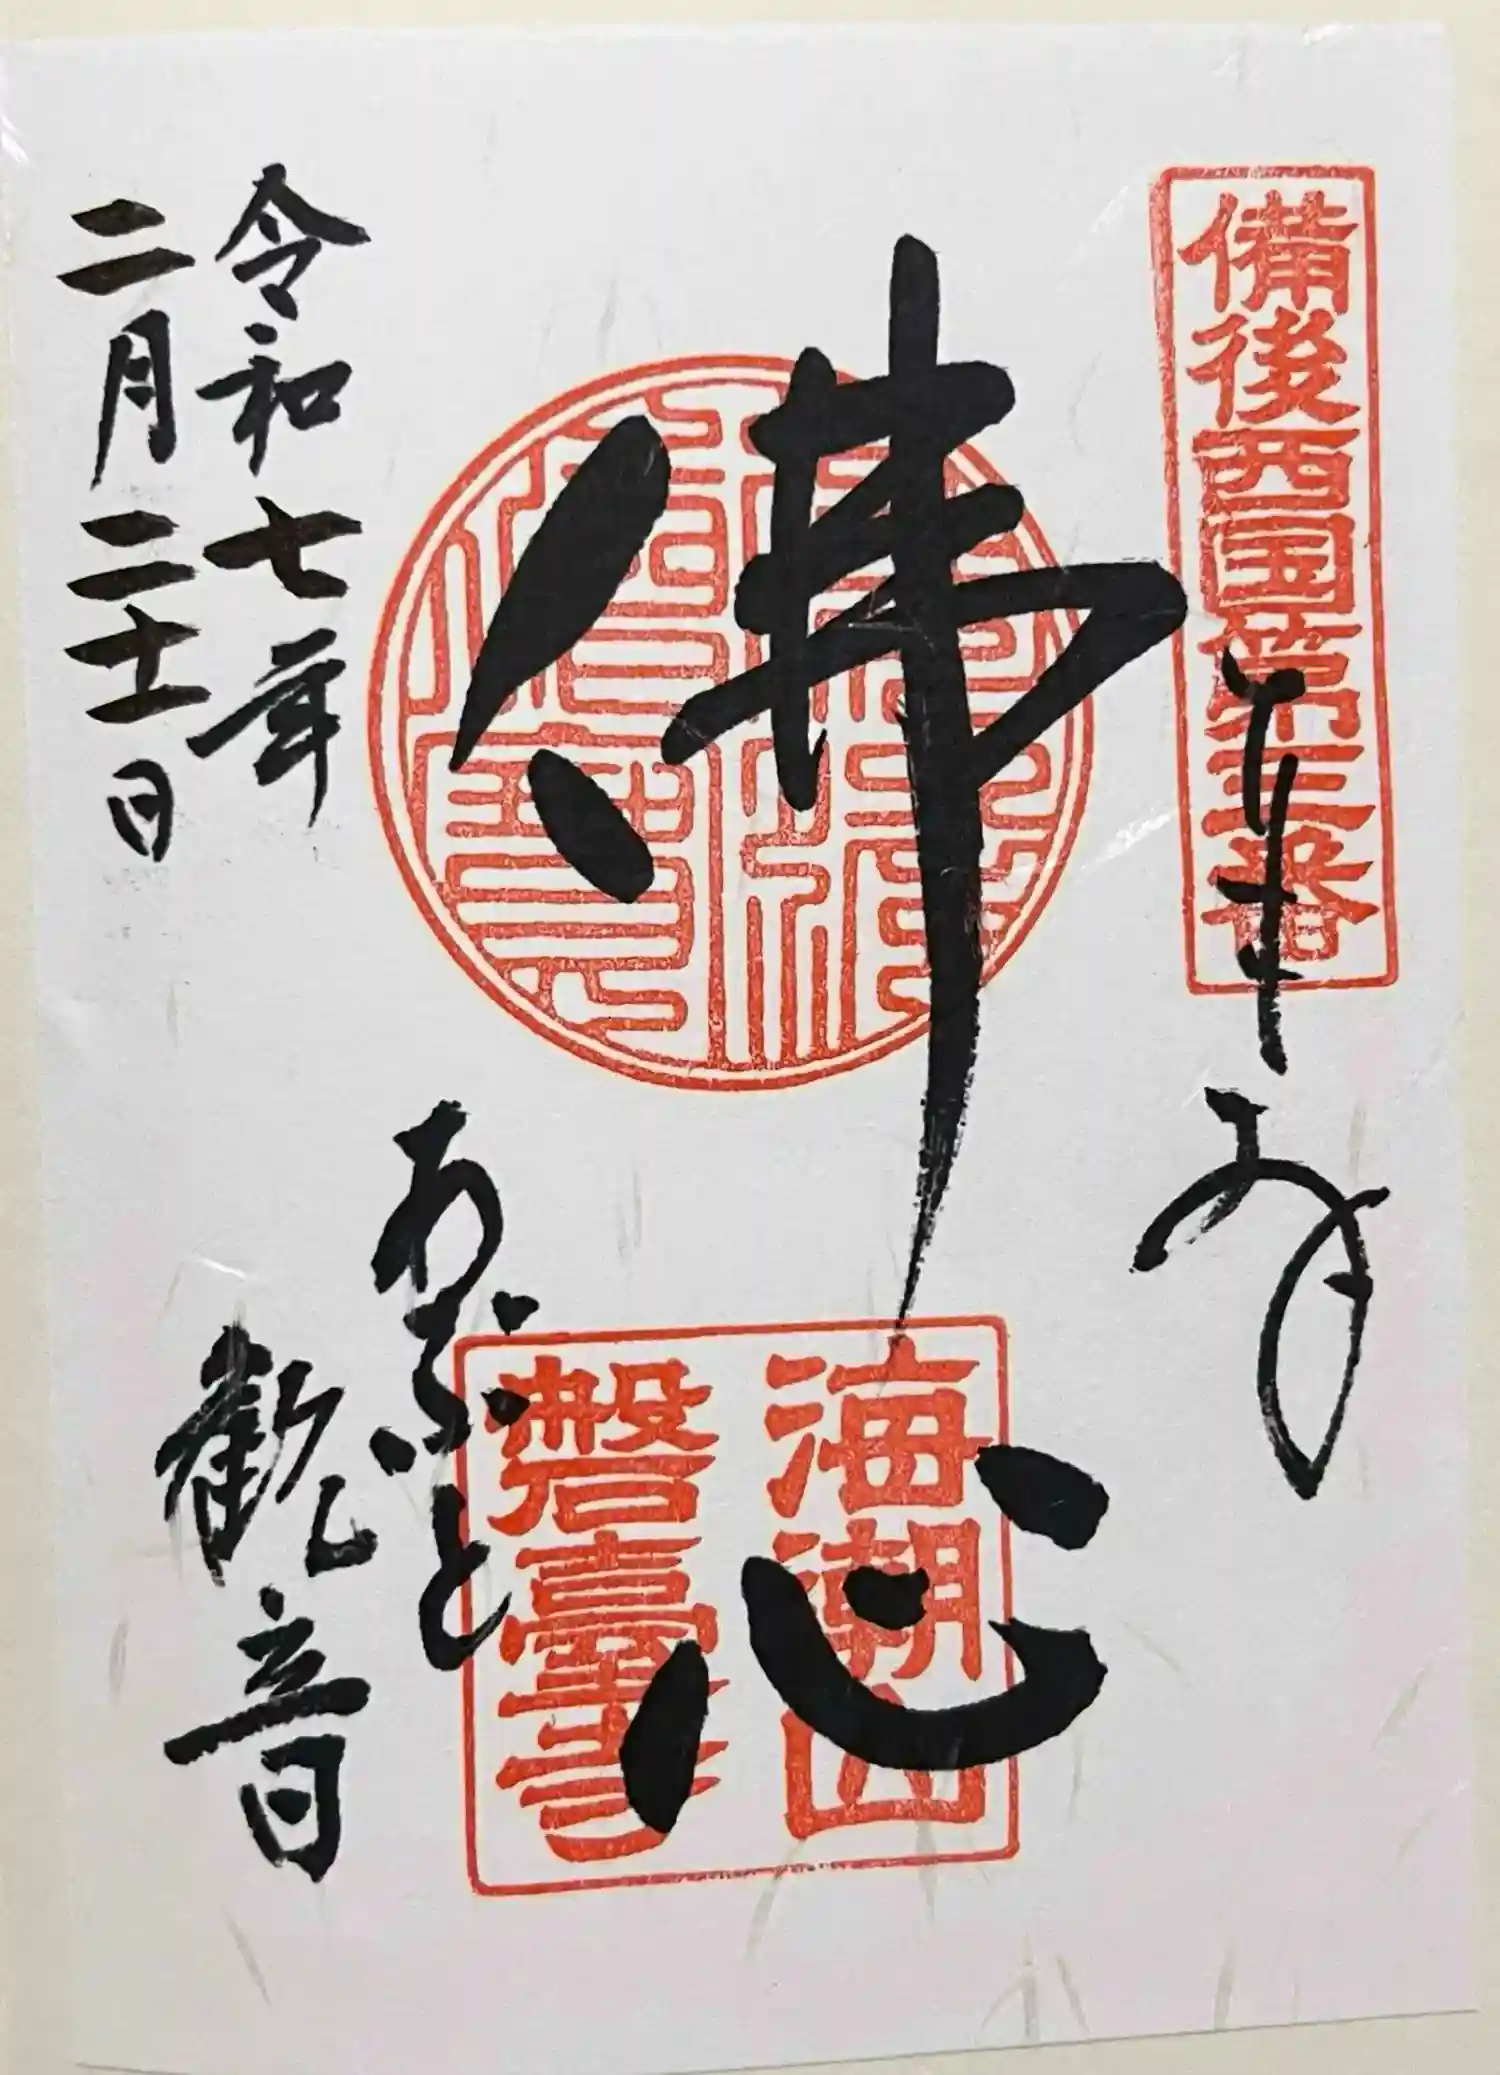 備後西国第三番
奉拝
佛心
海潮山
磐臺寺
あぶと
観音
令和七年
二月二十一日